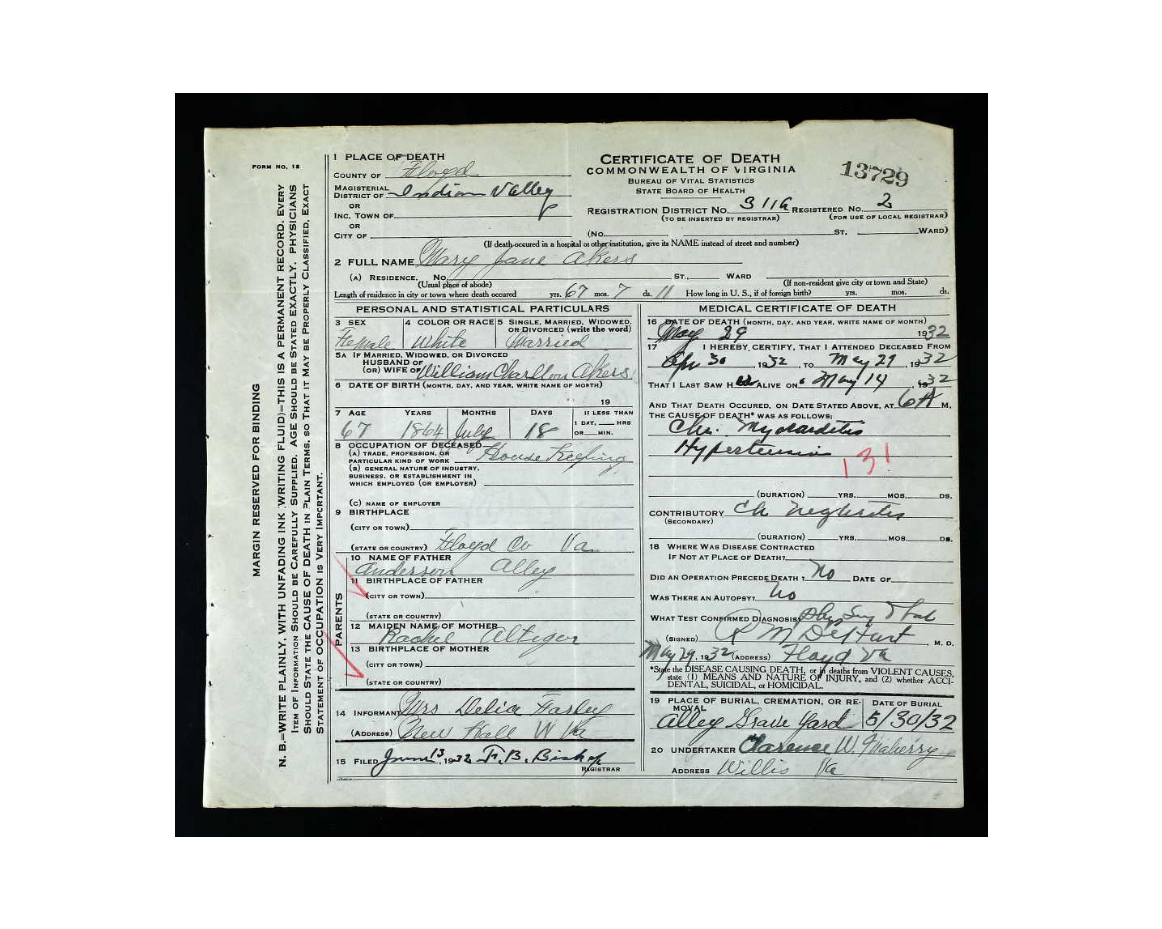 FORM NO. 12
MARGIN RESERVED FOR BINDING
N. B.—WRITE PLAINLY, WITH UNFADING INK (WRITING FLUID)—THIS IS A PERMANENT RECORD. EVERY
ITEM OF INFORMATION SHOULD BE CAREFULLY SUPPLIED. AGE SHOULD BE STATED EXACTLY. PHYSICIANS
SHOULD STATE THE CAUSE OF DEATH IN PLAIN TERMS, SO THAT IT MAY BE PROPERLY CLASSIFIED. EXACT
STATEMENT OF OCCUPATION IS VERY IMPORTANT.
1 PLACE OF DEATH
COUNTY OF Floyd
MAGISTERIAL
DISTRICT OF Indian Valley
OR
INC. TOWN OF
OR
CITY OF
CERTIFICATE OF DEATH
COMMONWEALTH OF VIRGINIA
BUREAU OF VITAL STATISTICS
STATE BOARD OF HEALTH
13729
REGISTRATION DISTRICT NO. 311A REGISTERED NO. 2
(TO BE INSERTED BY REGISTRAR) (FOR USE OF LOCAL REGISTRAR)
(NO. ST. WARD)
(If death occured in a hospital or other institution, give its NAME instead of street and number)
2 FULL NAME Mary Jane Akers
(A) RESIDENCE. NO. ST., WARD
(Usual place of abode) (If non-resident give city or town and State)
Length of residence in city or town where death occured yrs. 67 mos. 7 ds. 11 How long in U. S., if of foreign birth? yrs. mos. ds.
PERSONAL AND STATISTICAL PARTICULARS
3 SEX 4 COLOR OR RACE 5 SINGLE, MARRIED, WIDOWED, OR DIVORCED (write the word)
Female White Married
5A IF MARRIED, WIDOWED, OR DIVORCED
HUSBAND OF
(OR) WIFE OF William Charlton Akers
6 DATE OF BIRTH (MONTH, DAY, AND YEAR, WRITE NAME OF MONTH)
19
7 AGE YEARS MONTHS DAYS II LESS THAN
1 DAY, HRS
OR MIN.
67 1864 July 18
8 OCCUPATION OF DECEASED
(A) TRADE, PROFESSION, OR
PARTICULAR KIND OF WORK House Keeping
(B) GENERAL NATURE OF INDUSTRY,
BUSINESS, OR ESTABLISHMENT IN
WHICH EMPLOYED (OR EMPLOYER)
(C) NAME OF EMPLOYER
9 BIRTHPLACE
(CITY OR TOWN)
(STATE OR COUNTRY) Floyd Co Va
PARENTS
10 NAME OF FATHER
Anderson Alley
11 BIRTHPLACE OF FATHER
(CITY OR TOWN)
(STATE OR COUNTRY)
12 MAIDEN NAME OF MOTHER
Rachel
13 BIRTHPLACE OF MOTHER
(CITY OR TOWN)
(STATE OR COUNTRY)
14 INFORMANT Mrs Delia Farley
(ADDRESS) New Hall W Va
15 FILED June 13, 1932 F. B. Bishop
REGISTRAR
MEDICAL CERTIFICATE OF DEATH
16 DATE OF DEATH (MONTH, DAY, AND YEAR, WRITE NAME OF MONTH)
May 29 1932
17 I HEREBY CERTIFY, THAT I ATTENDED DECEASED FROM
Apr 30 1932, TO May 29, 1932
THAT I LAST SAW H ALIVE ON May 14, 1932
AND THAT DEATH OCCURED, ON DATE STATED ABOVE, AT 6 A M.
THE CAUSE OF DEATH* WAS AS FOLLOWS:
Chr. Myocarditis
Hypertension
131
(DURATION) YRS. MOS. DS.
CONTRIBUTORY Ch Nephritis
(SECONDARY)
(DURATION) YRS. MOS. DS.
18 WHERE WAS DISEASE CONTRACTED
IF NOT AT PLACE OF DEATH?
DID AN OPERATION PRECEDE DEATH? No DATE OF
WAS THERE AN AUTOPSY? No
WHAT TEST CONFIRMED DIAGNOSIS?
(SIGNED) R M DeHart M. D.
May 29, 1932 (ADDRESS) Floyd Va
*State the DISEASE CAUSING DEATH, or in deaths from VIOLENT CAUSES,
state (1) MEANS AND NATURE OF INJURY, and (2) whether ACCI-
DENTAL, SUICIDAL, or HOMICIDAL.
19 PLACE OF BURIAL, CREMATION, OR RE- DATE OF BURIAL
MOVAL
Alley Grave Yard 5/30/32
20 UNDERTAKER Clarence W.
ADDRESS Willis Va